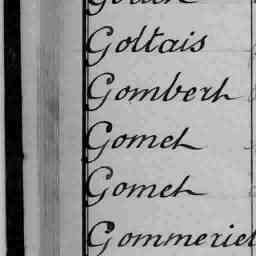 Goltais
Gombert
Gomet
Gomet
Gommeriel